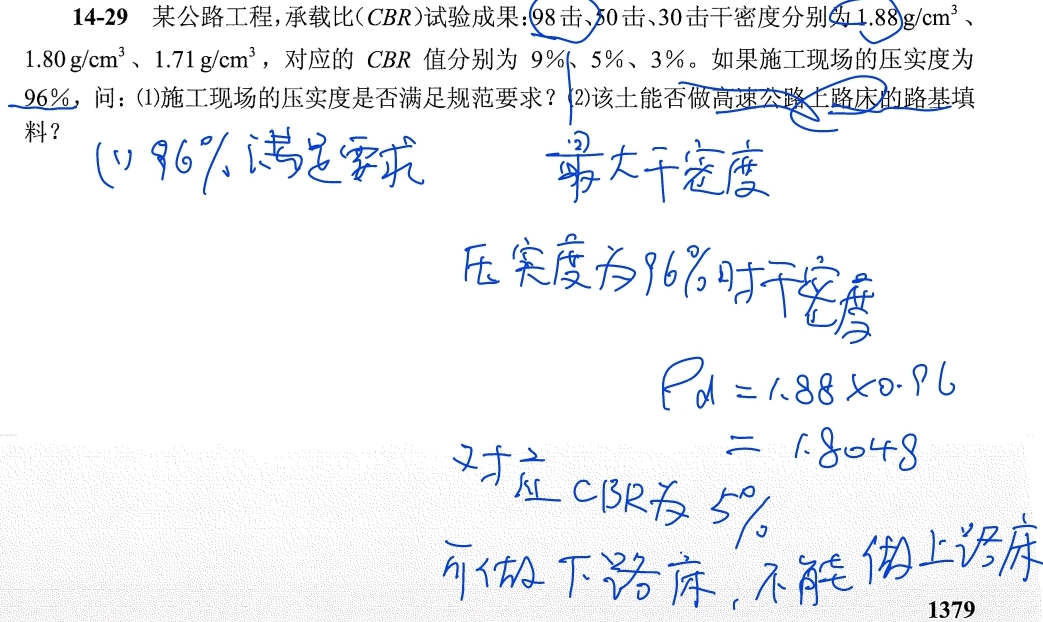 14-29 某公路工程,承载比(CBR)试验成果:98击、50击、30击干密度分别为1.88g/cm³、
1.80g/cm³、1.71g/cm³,对应的 CBR 值分别为 9%、5%、3%。如果施工现场的压实度为
96%,问:(1)施工现场的压实度是否满足规范要求?(2)该土能否做高速公路上路床的路基填
料?
(1) 96%满足要求
(2)
最大干密度
压实度为96%时干密度
ρd = 1.88×0.96
= 1.8048
对应CBR为5%
可做下路床,不能做上路床
1379